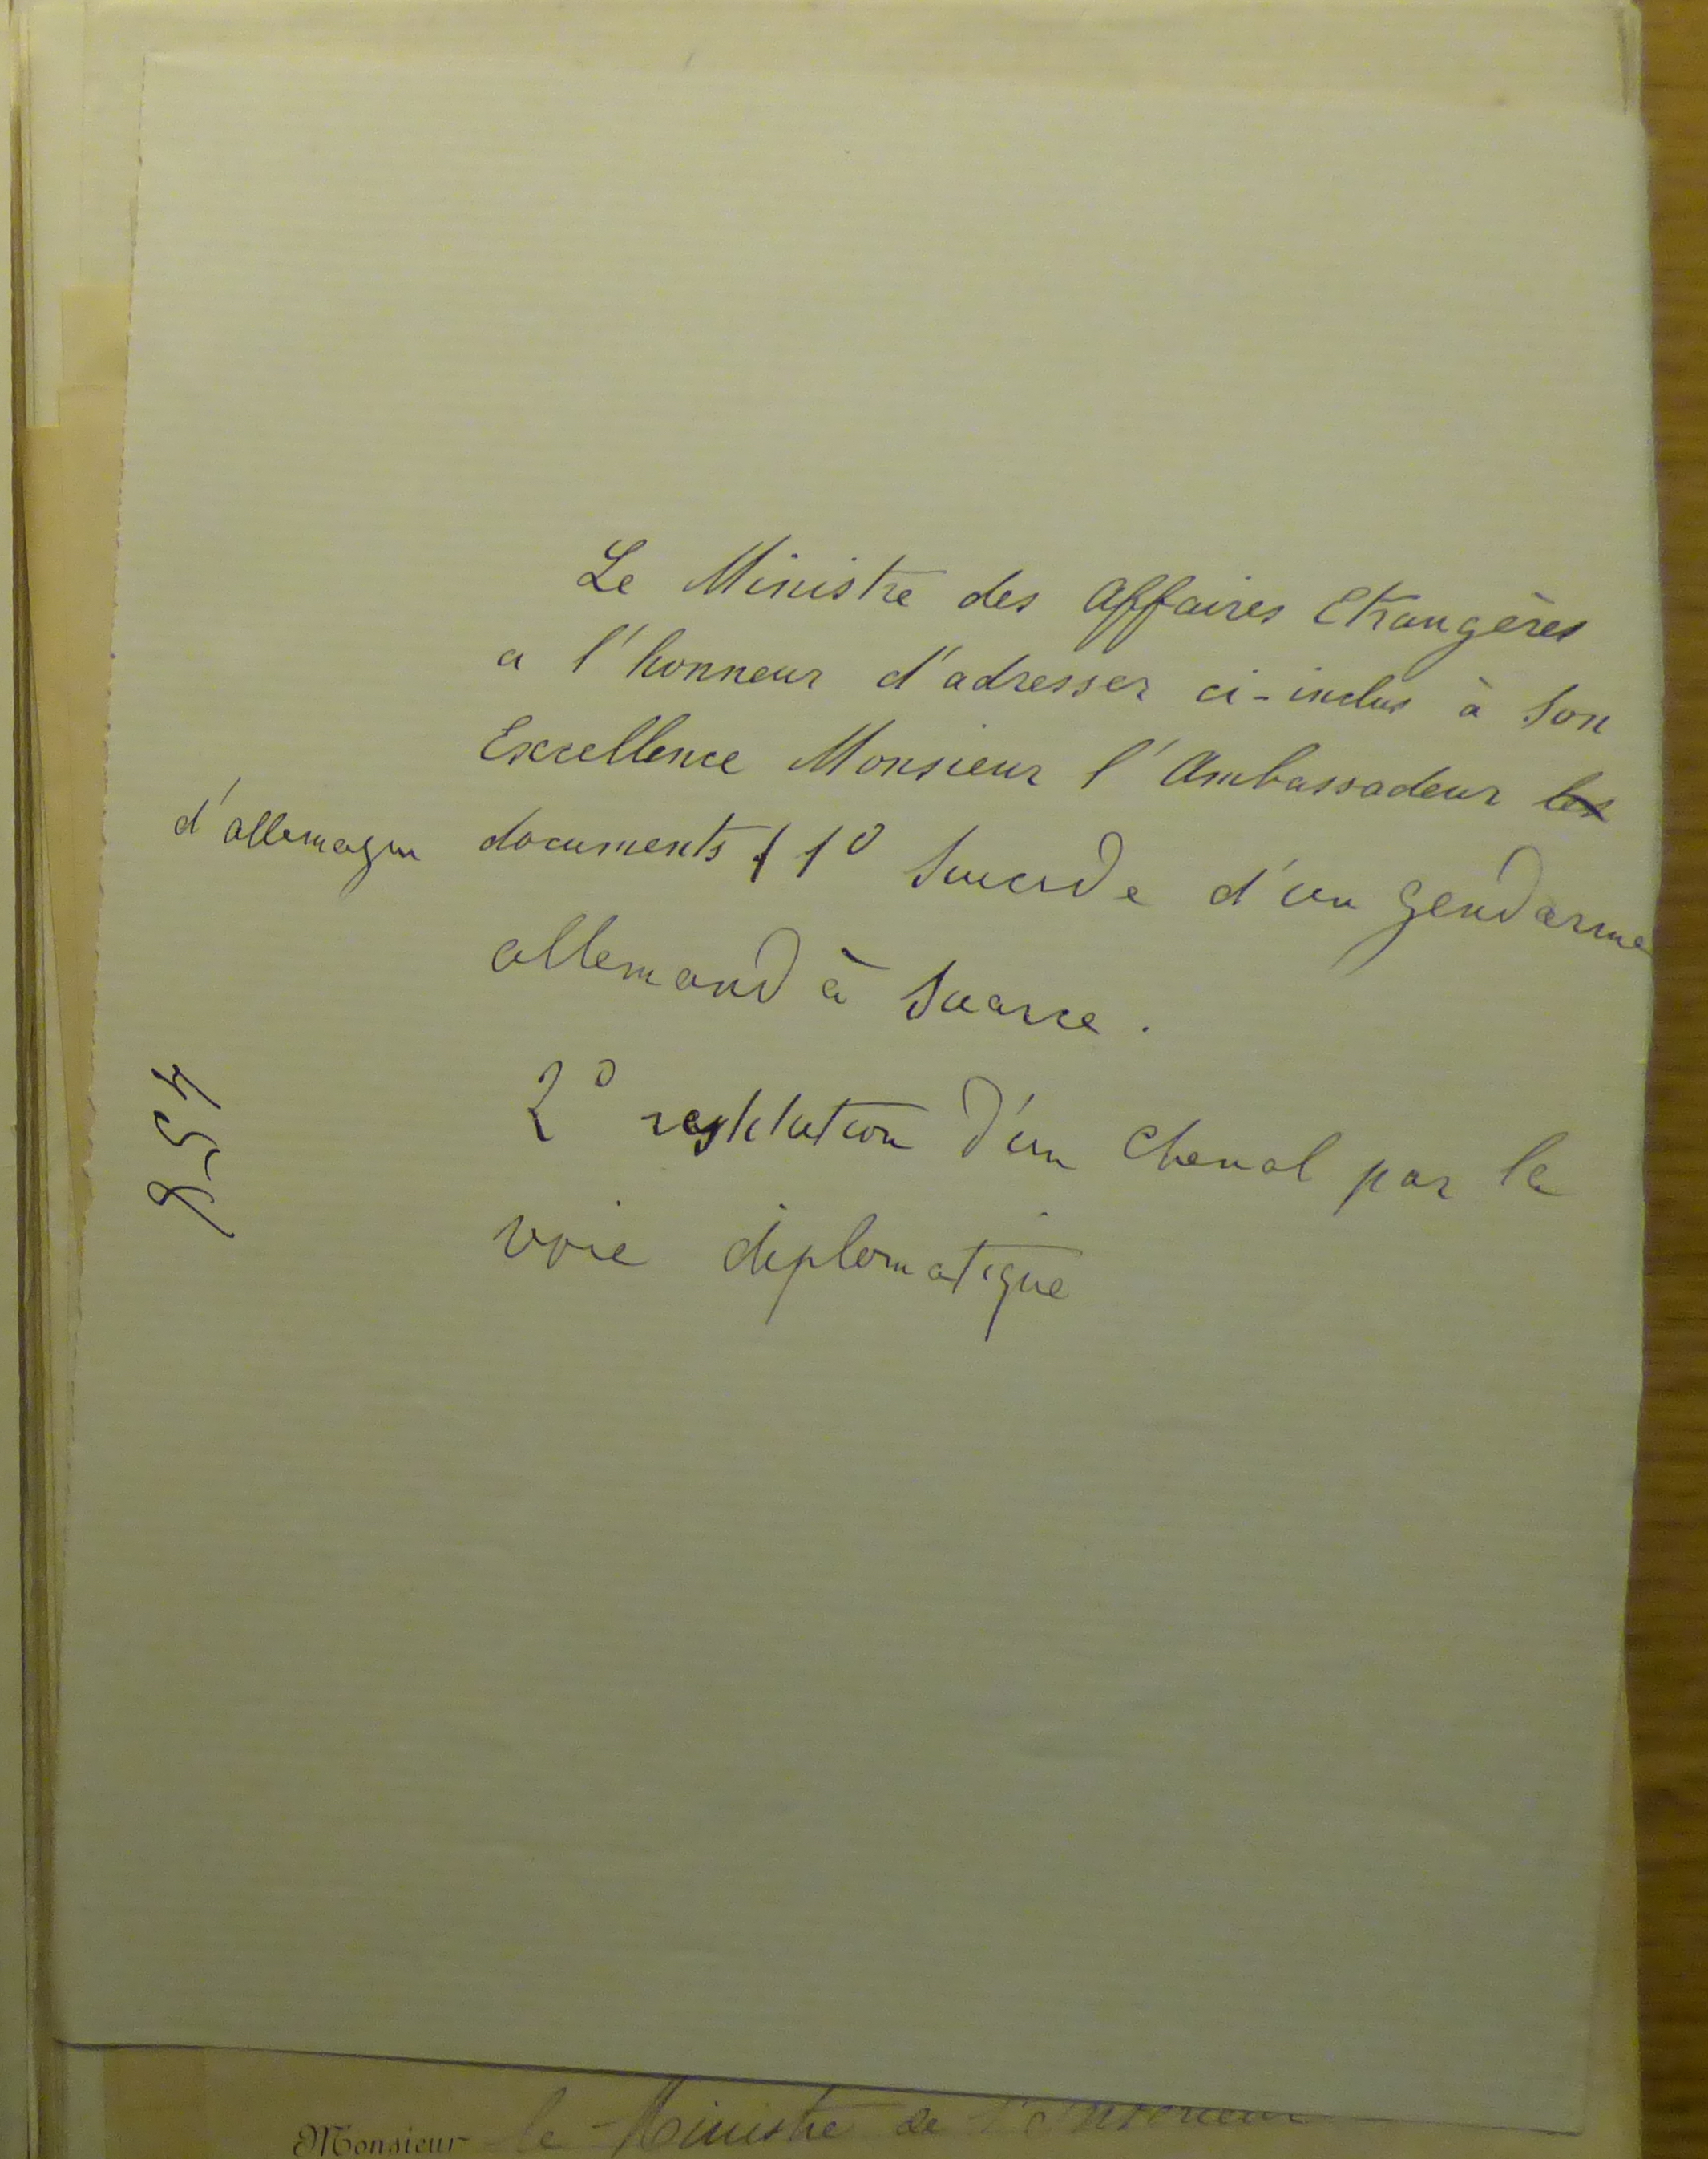 Le Ministre des Affaires Etrangères
a l'honneur d'adresser ci-inclus à Son
Excellence Monsieur l'Ambassadeur les
d'allemagne documents 1° Suicide d'un gendarme
allemand à Suarce.
2° restitution d'un cheval par la
voie diplomatique
Monsieur le Ministre de l'Intérieur